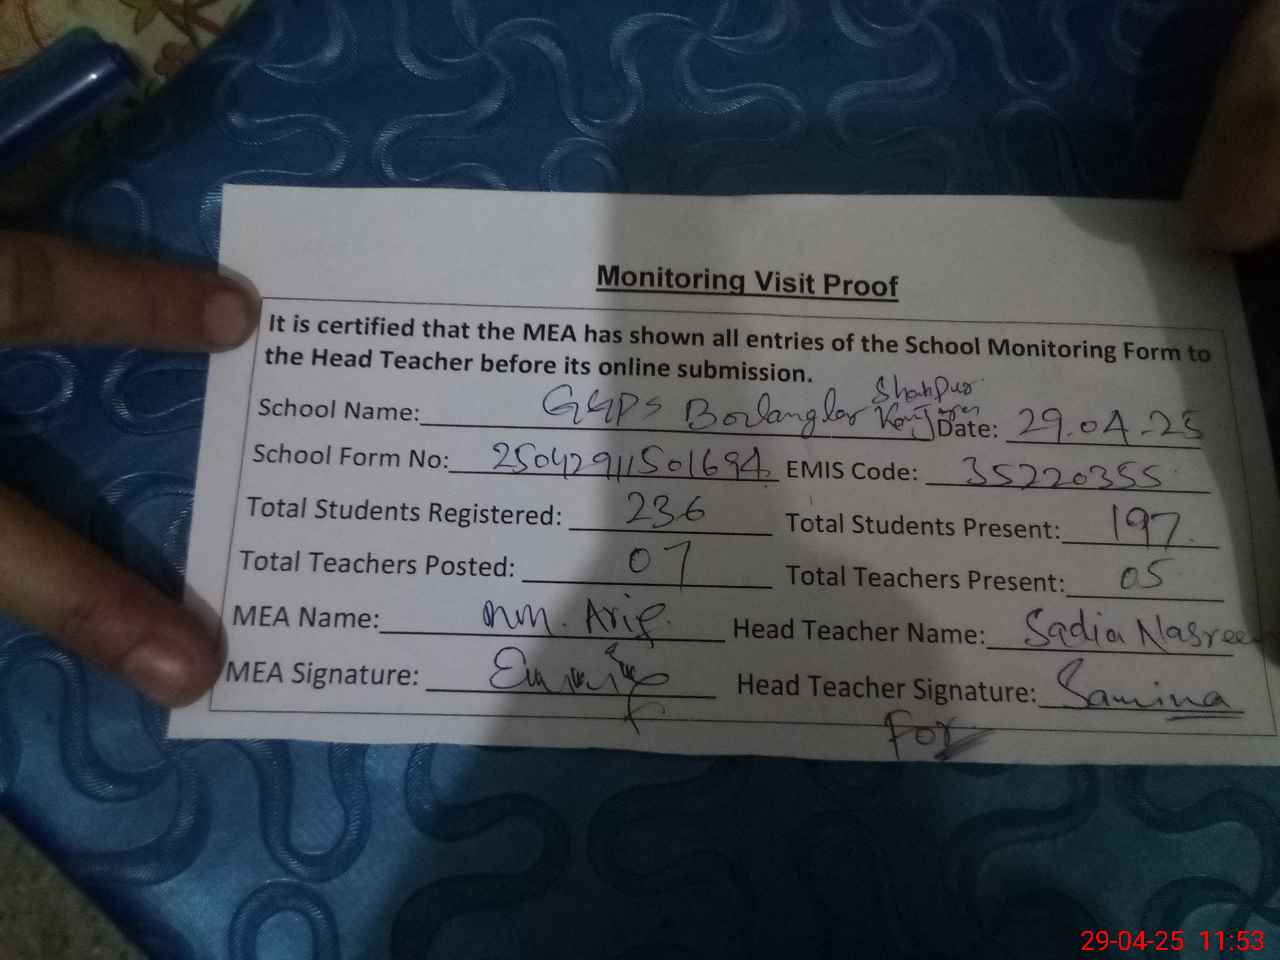 Monitoring Visit Proof
It is certified that the MEA has shown all entries of the School Monitoring Form to
the Head Teacher before its online submission.
School Name: GGPS Shahpur Date: 29.04.25
School Form No: 25042911501694 EMIS Code: 35220355
Total Students Registered: 236 Total Students Present: 197
Total Teachers Posted: 07 Total Teachers Present: 05
MEA Name: M. Arif Head Teacher Name: Sadia Nasree
MEA Signature: Head Teacher Signature: Samina
For
29-04-25 11:53